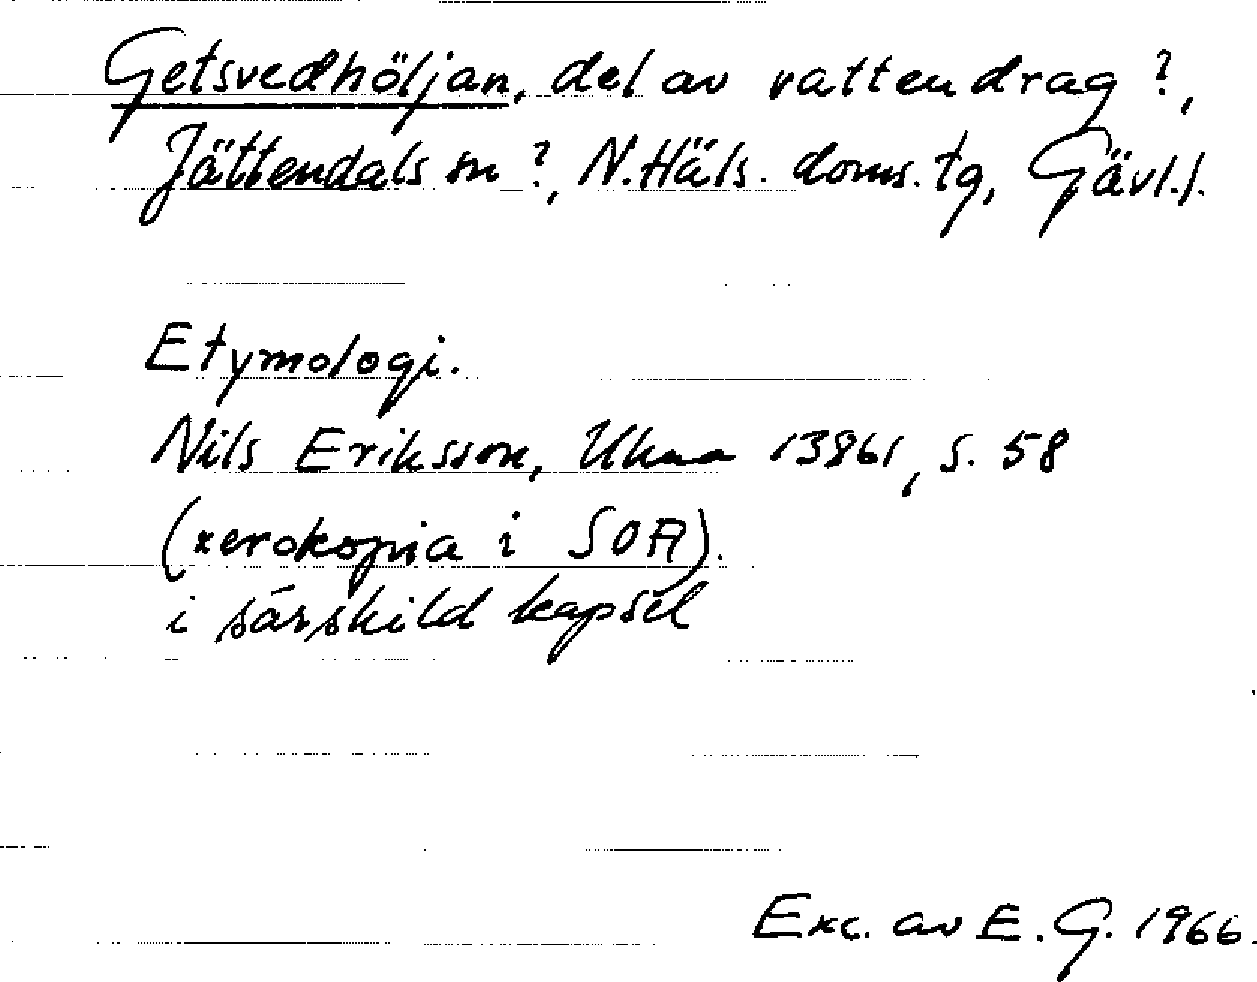 Getsvedhöljan, del av vattendrag?,
Jättendals sn?, N. Häls. doms. tg, Gävl. l.
Etymologi.
Nils Eriksson, Ukna 13861, s. 58
(xerokopia i SOA).
i särskild kapsel
Exc. av E. G. 1966.